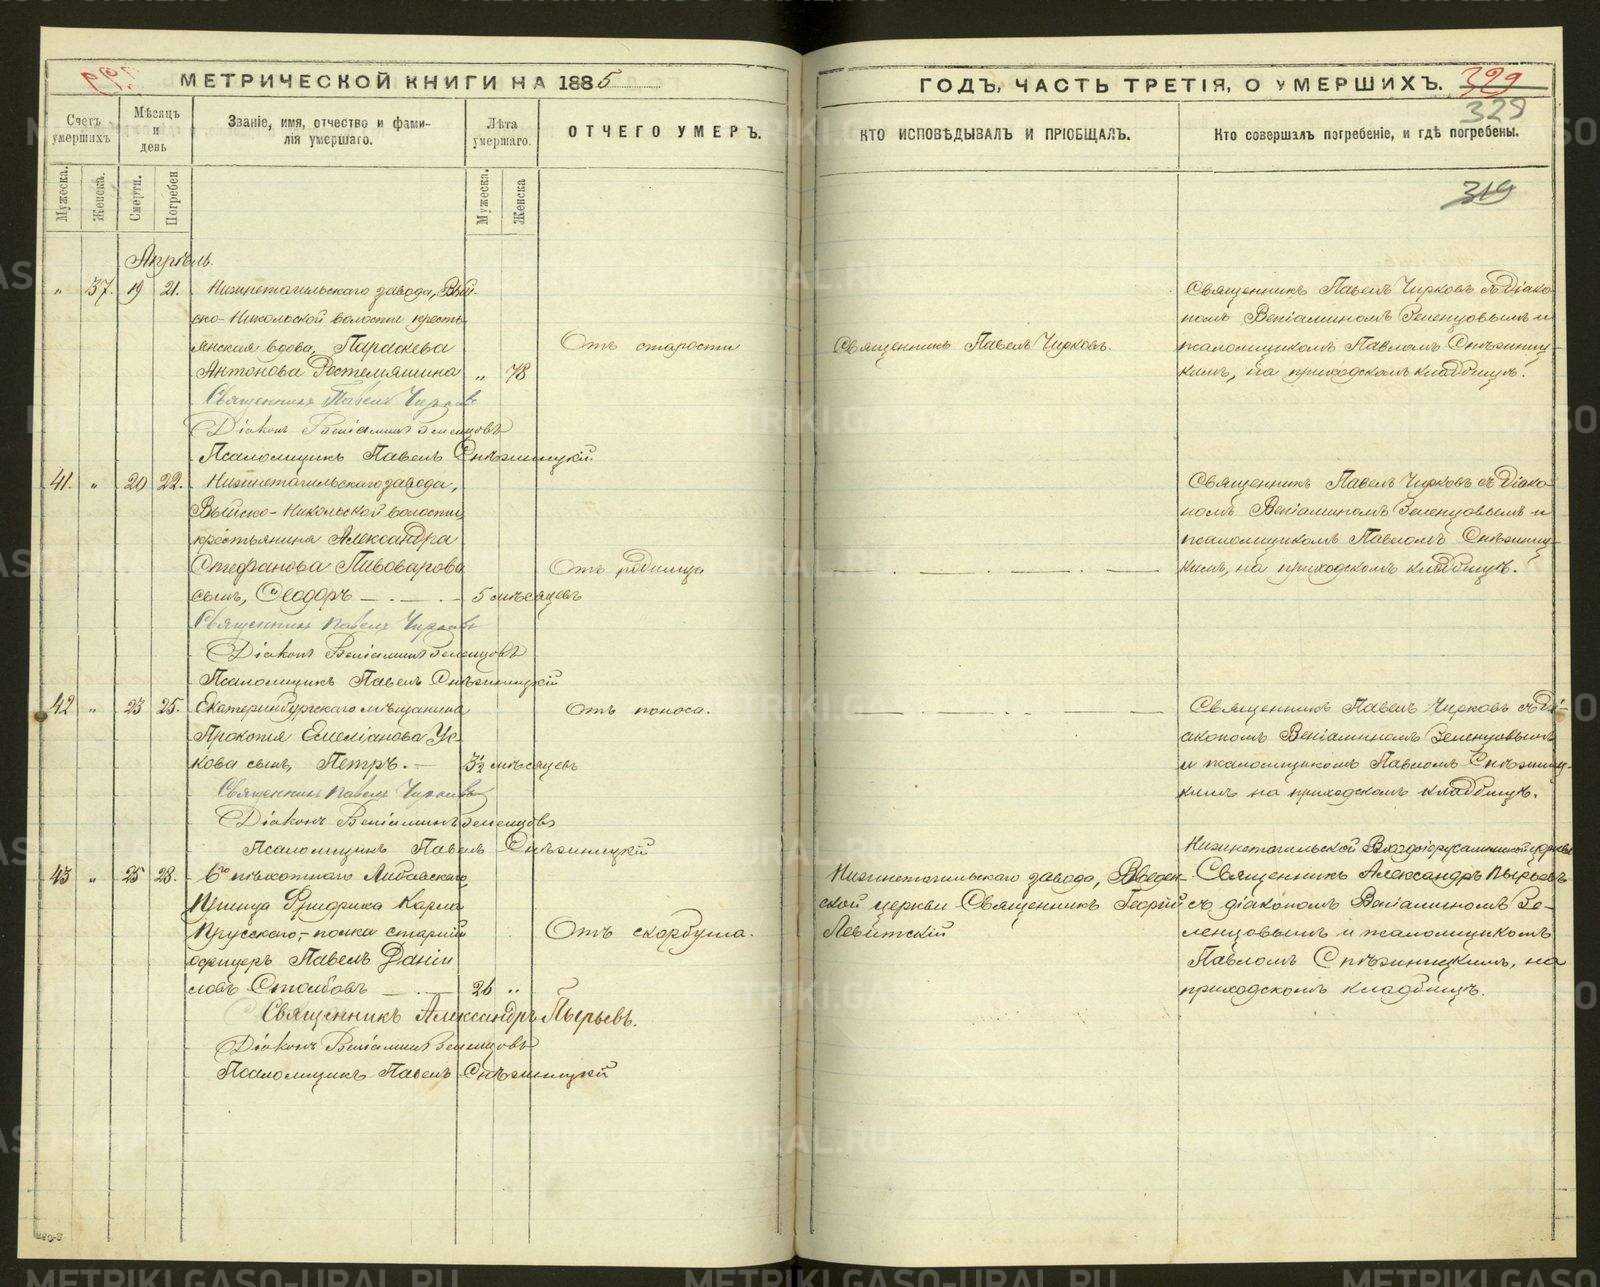 МЕТРИЧЕСКОЙ КНИГИ НА 1885
Счетъ умершихъ
Мѣсяцъ и день
Званіе, имя, отчество и фамилія умершаго.
Лѣта умершаго.
ОТЧЕГО УМЕРЪ.
Мужеска.
Женска.
Смерти.
Погребен.
Мужеска.
Женска
Апрѣль.
" 37. 19 21. Нижнетагильскаго завода, Вый-
ско-Никольской волости кресть-
янская вдова, Параскева
Антонова Ростемяшина " 78
Отъ старости
Священникъ Павелъ Чирковъ
Діаконъ Веніаминъ Зеленцовъ
Псаломщикъ Павелъ Снѣжницкій
41. " 20 22. Нижнетагильскаго завода,
Выйско-Никольской волости,
крестьянина Александра
Стефанова Пивоварова
Отъ родимца
сынъ, Ѳеодоръ 5 мѣсяцевъ
Священникъ Павелъ Чирковъ
Діаконъ Веніаминъ Зеленцовъ
Псаломщикъ Павелъ Снѣжницкій
42 " 23 25. Екатеринбургскаго мѣщанина
Отъ поноса.
Прокопія Емеліанова Ус-
кова сынъ, Петръ. 3½ мѣсяцевъ
Священникъ Павелъ Чирковъ
Діаконъ Веніаминъ Зеленцовъ
Псаломщикъ Павелъ Снѣжницкій
43 " 25 28. 6го пѣхотнаго Либавскаго
Принца Фридриха Карла
Прусскаго, полка старшій
Отъ скорбута.
офицеръ Павелъ Даніи
ловъ Столбовъ 26 "
Священникъ Александръ Пырьевъ.
Діаконъ Веніаминъ Зеленцовъ
Псаломщикъ Павелъ Снѣжницкій
ГОДЪ, ЧАСТЬ ТРЕТІЯ, О УМЕРШИХЪ.
329
329
КТО ИСПОВѢДЫВАЛЪ И ПРІОБЩАЛЪ.
Кто совершалъ погребеніе, и гдѣ погребены.
319
Священникъ Павелъ Чирковъ.
Священникъ Павелъ Чирковъ съ Діако-
номъ Веніаминомъ Зеленцовымъ и
псаломщикомъ Павломъ Снѣжниц-
кимъ, на приходскомъ кладбищѣ.
Священникъ Павелъ Чирковъ съ Діако-
номъ Веніаминомъ Зеленцовымъ и
псаломщикомъ Павломъ Снѣжниц-
кимъ, на приходскомъ кладбищѣ.
Священникъ Павелъ Чирковъ съ Ді-
акономъ Веніаминомъ Зеленцовымъ
и псаломщикомъ Павломъ Снѣжниц-
кимъ на приходскомъ кладбищѣ.
Нижнетагильскаго завода, Введен-
ской церкви Священникъ Георгій
Левитскій
Нижнетагильской Входоіерусалимской церкви
Священникъ Александръ Пырьевъ
съ діакономъ Веніаминомъ Зе-
ленцовымъ и псаломщикомъ
Павломъ Снѣжницкимъ, на
приходскомъ кладбищѣ.
METRIKI.GASO-URAL.RU